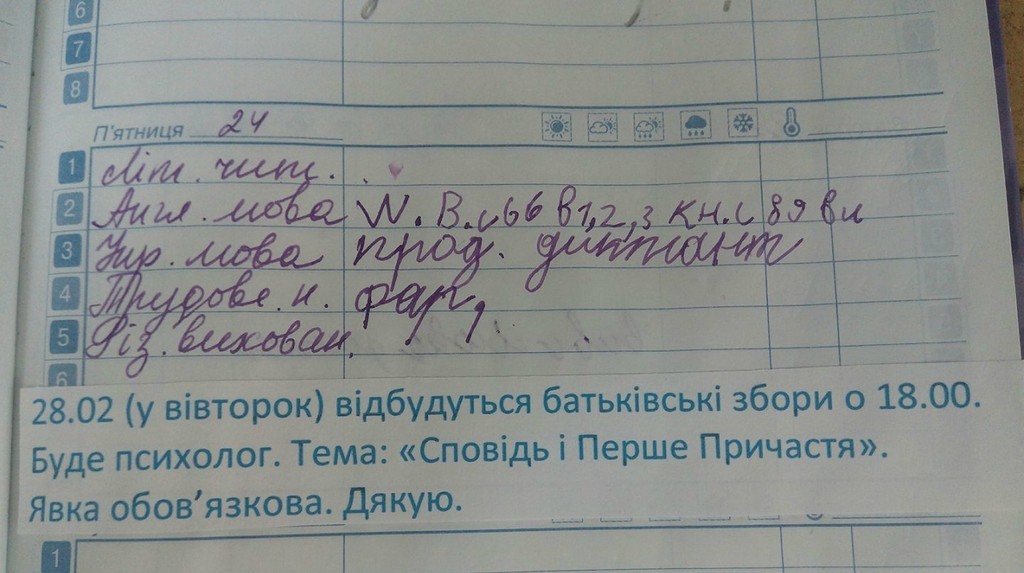 6
7
8
П'ятниця 24
1 Літ. чит.
2 Англ. мова W. В. с 66 в 1,2,3 кн. с 89 вп
3 Укр. мова прод. диктант
4 Трудове н. фар,
5 Фіз. вихован.
6
28.02 (у вівторок) відбудуться батьківські збори о 18.00.
Буде психолог. Тема: «Сповідь і Перше Причастя».
Явка обов’язкова. Дякую.
1